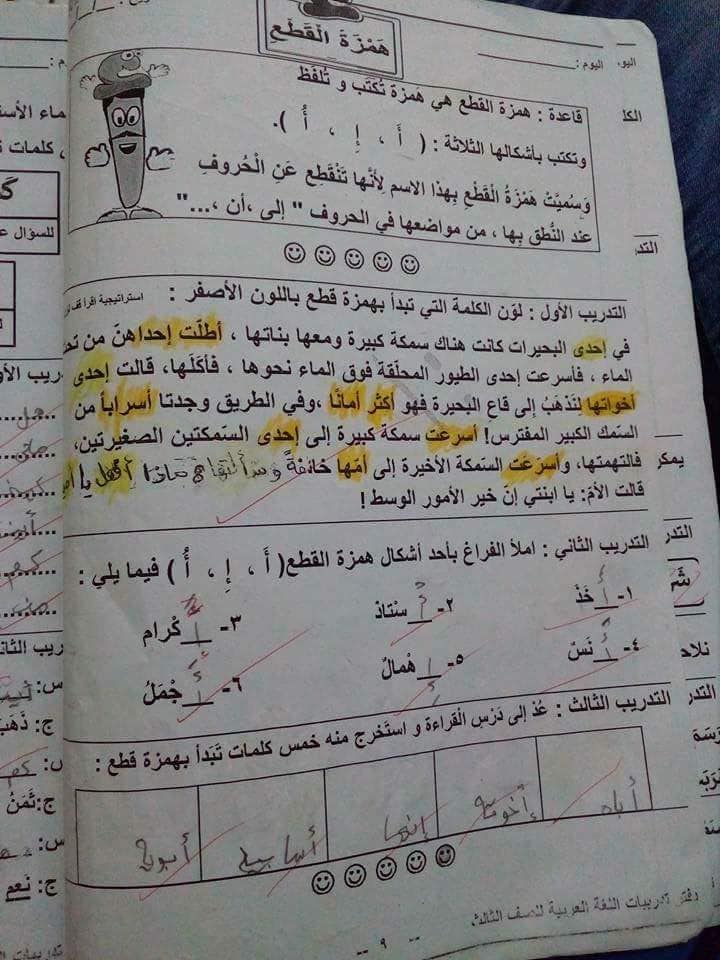 هَمْزَةَ الْقَطْع
اليوم :
قاعدة : همزة القطع هي همزة تُكتَب و تُلفَظ
وتكتب بأشكالها الثلاثة : ( أَ ، إِ ، أُ ).
وَسُمِيَّتْ هَمْزَةُ الْقَطْعِ بِهذا الاسم لِأَنَّها تَنْقَطِع عَنِ الْحُروفِ
عند النُّطق بِها ، من مواضعها في الحروف " إلى ،أن ،..."
التدريب الأول : لوّن الكلمة التي تبدأ بهمزة قطع باللون الأصفر :
في إحدى البحيرات كانت هناك سمكة كبيرة ومعها بناتها ، أطلّت إحداهنّ من
الماء ، فأسرعت إحدى الطيور المحلّقة فوق الماء نحوها ، فأكَلَها، قالت إحدى
أخواتها لِنَذهَبُ إلى قاع البحيرة فهو أكثر أمانًا ،وفي الطريق وجدتا أسراباً من
السّمك الكبير المفترس! أسرعت سمكة كبيرة إلى إحدى السّمكتين الصغيرتين،
فالتهمتها، وأسرَعَت السّمكة الأخيرة إلى أمّها خائفةً ماذا أفعل يا
قالت الأمّ: يا ابنتي إن خير الأمور الوسط !
التدريب الثاني : املأ الفراغ بأحد أشكال همزة القطع( أَ ، إِ ، أُ ) فيما يلي :
١- أَخَذَ ٢- أُستاذ ٣- إكْرام
٤- أَنَسٌ ٥- إهْمالٌ ٦- أَجْمَلُ
التدريب الثالث : عُدْ إلى دَرْسِ القراءة و استَخرج منه خمس كلمات تَبَدأ بهمزة قطع :
أباه إخوته إنها أسابيع أبوه
دفتر تدريبات اللغة العربية للصف الثالث
-- ٩ --